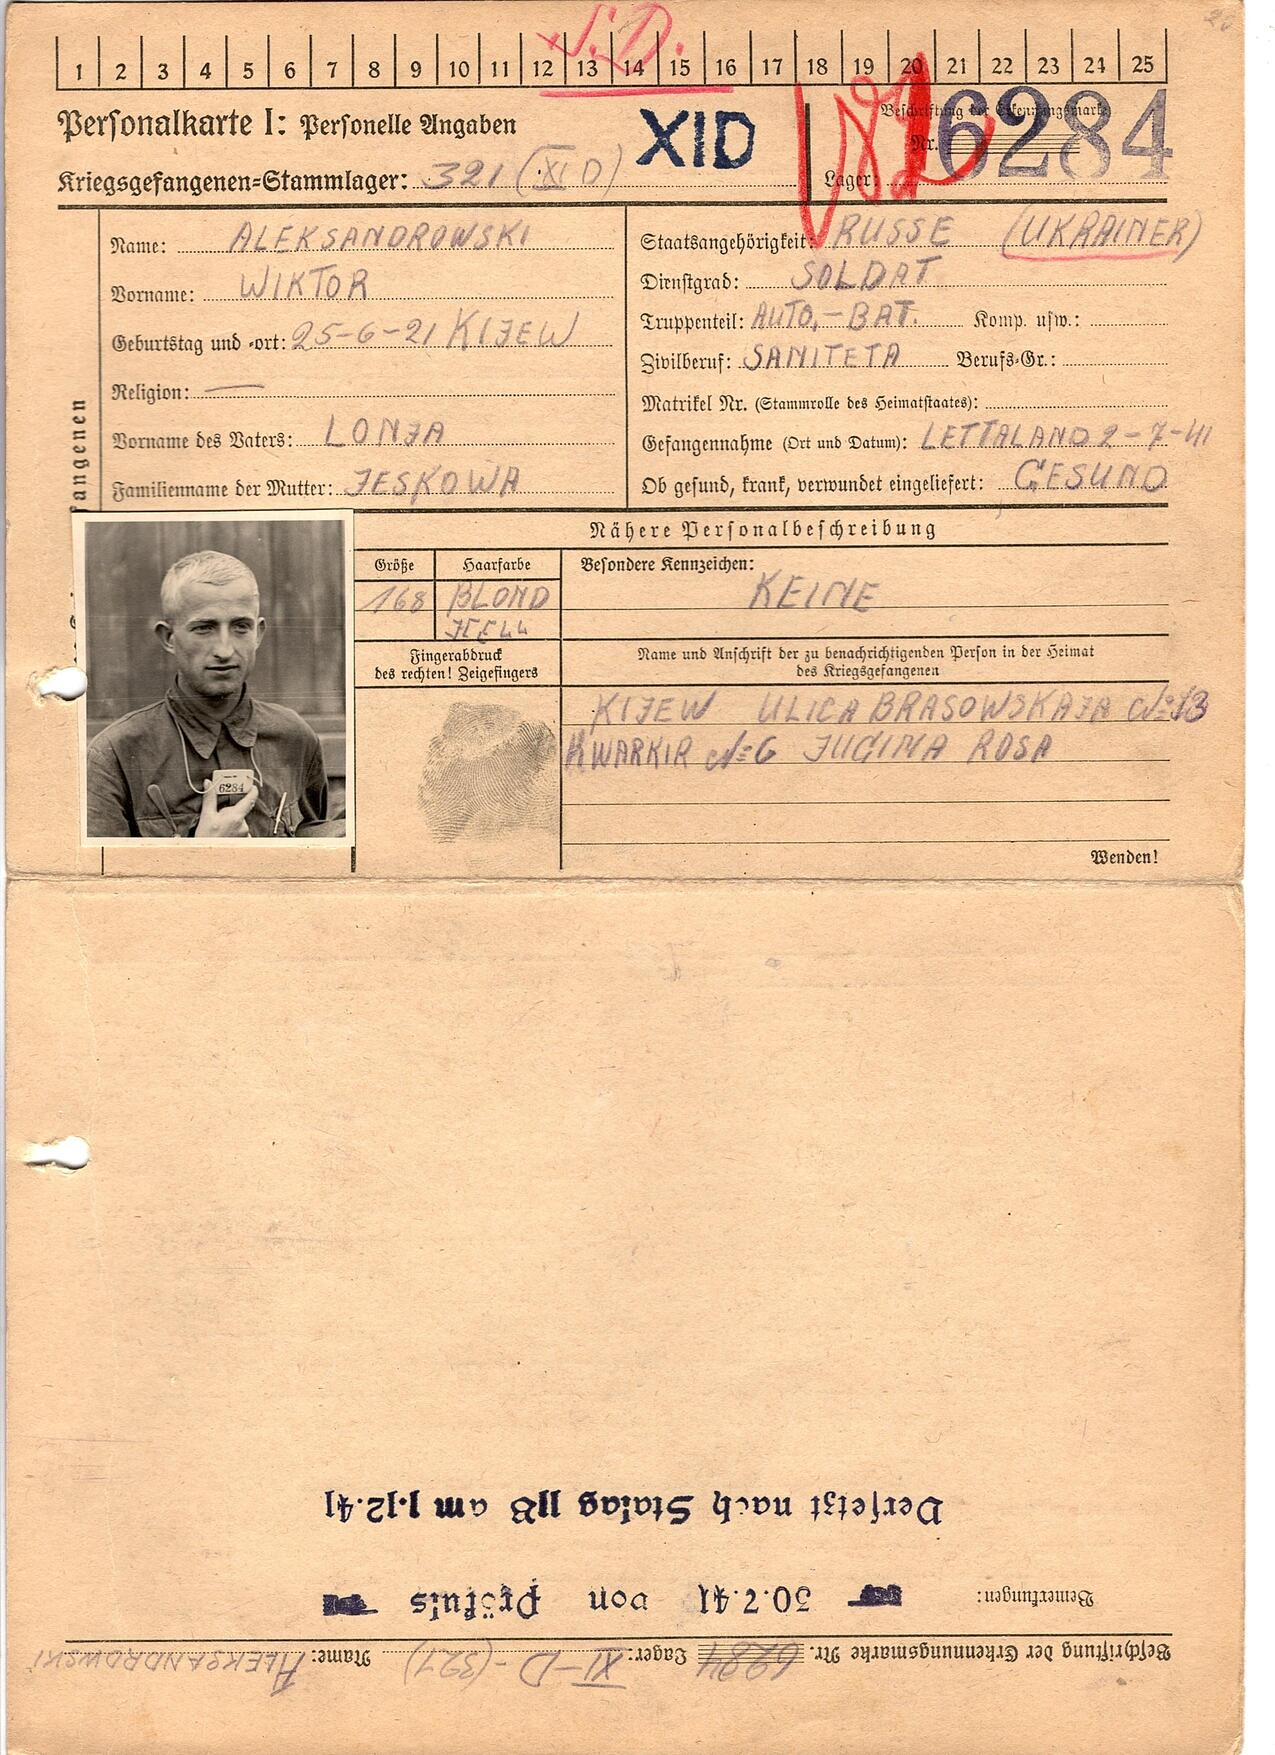 S.D.
1 2 3 4 5 6 7 8 9 10 11 12 13 14 15 16 17 18 19 20 21 22 23 24 25
Personalkarte I: Personelle Angaben
XID
Beschriftung der Erkennungsmarke
Nr. 6284
Kriegsgefangenen-Stammlager: 321 (XI D)
Lager:
Name: ALEKSANDROWSKI
Vorname: WIKTOR
Geburtstag und -ort: 25-6-21 KIJEW
Religion: —
Vorname des Vaters: LONJA
Familienname der Mutter: JESKOWA
Staatsangehörigkeit: RUSSE (UKRAINER)
Dienstgrad: SOLDAT
Truppenteil: AUTO.-BAT. Komp. usw.:
Zivilberuf: SANITETA Berufs-Gr.:
Matrikel Nr. (Stammrolle des Heimatstaates):
Gefangennahme (Ort und Datum): LETTALAND 2-7-41
Ob gesund, krank, verwundet eingeliefert: GESUND
angenen
Nähere Personalbeschreibung
Größe
168
Haarfarbe
BLOND
Besondere Kennzeichen:
KEINE
Fingerabdruck
des rechten! Zeigefingers
Name und Anschrift der zu benachrichtigenden Person in der Heimat
des Kriegsgefangenen
KIJEW ULICA BRASOWSKAJA № 13
KWARKIR № 6 JUGINA ROSA
6284
Wenden!
Beschriftung der Erkennungsmarke Nr. 6284 Lager: XI-D-(321) Name: ALEKSANDROWSKI
Bemerkungen:
30.7.41 von Prökuls
Versetzt nach Stalag IIB am 1.12.41